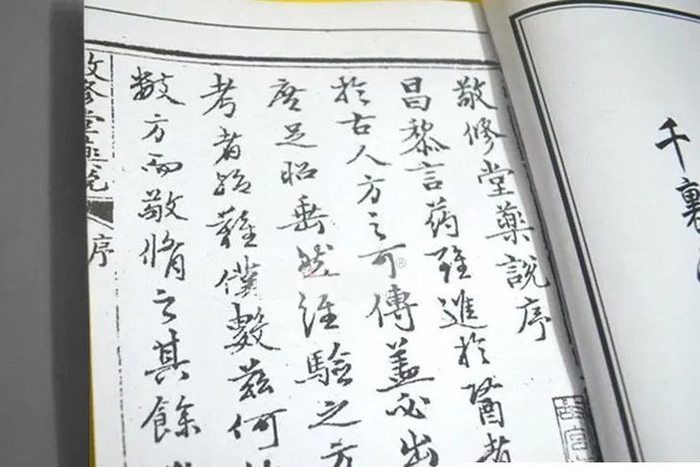 千裏
敬修堂藥說序
昌黎言药雖進於醫者
於古人方之可傳蓋必出
庶足昭垂然經驗之方
考者殆難僕數茲何
數方而敬脩之其餘
敬修堂藥說
序